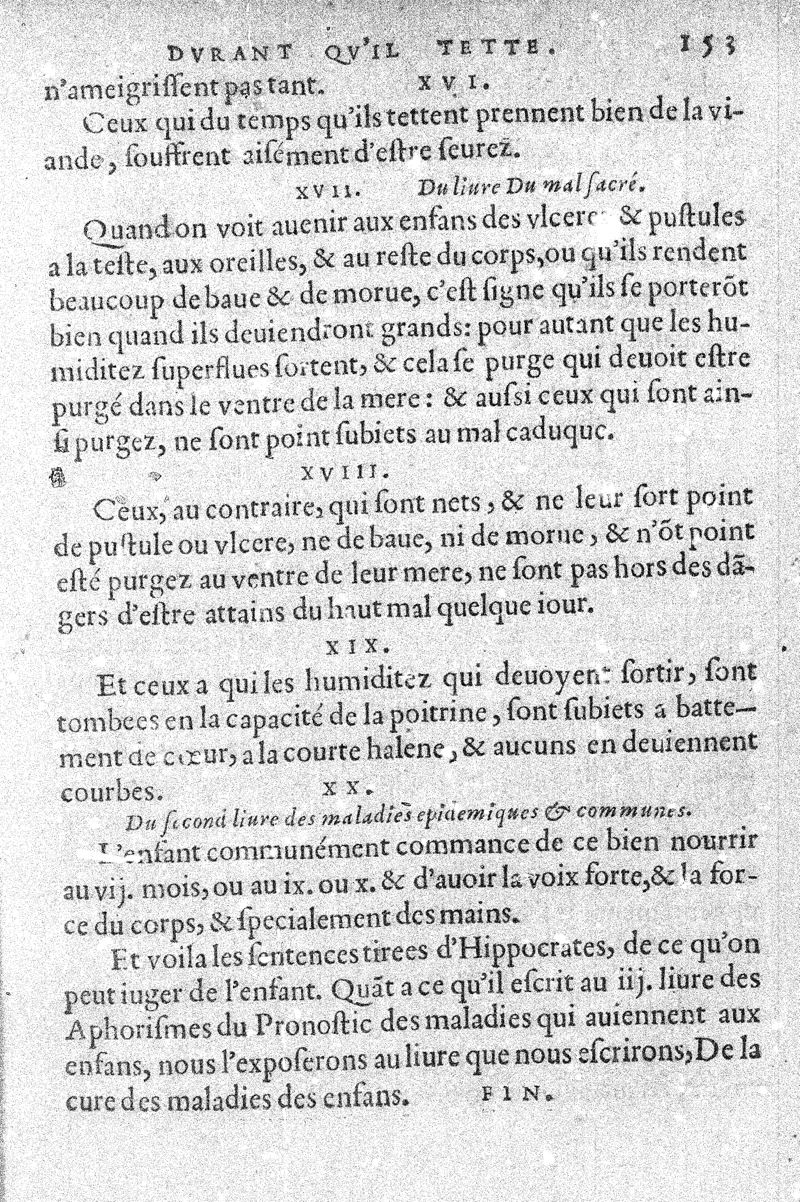 DVRANT QV'IL TETTE. 153
n'ameigriſſent pas tant. XVI.
Ceux qui du temps qu'ils tettent prennent bien de la vi-
ande, ſouffrent aiſément d'eſtre ſeurez.
XVII. Du liure Du mal ſacré.
Quand on voit auenir aux enfans des vlcere & puſtules
a la teſte, aux oreilles, & au reſte du corps, ou qu'ils rendent
beaucoup de baue & de morue, c'eſt ſigne qu'ils ſe porterõt
bien quand ils deuiendront grands: pour autant que les hu-
miditez ſuperflues ſortent, & cela ſe purge qui deuoit eſtre
purgé dans le ventre de la mere: & auſsi ceux qui ſont ain-
ſi purgez, ne ſont point ſubiets au mal caduque.
XVIII.
Ceux, au contraire, qui ſont nets, & ne leur ſort point
de puſtule ou vlcere, ne de baue, ni de morue, & n'õt point
eſté purgez au ventre de leur mere, ne ſont pas hors des dã-
gers d'eſtre attains du haut mal quelque iour.
XIX.
Et ceux a qui les humiditez qui deuoyent ſortir, ſont
tombees en la capacité de la poitrine, ſont ſubiets a batte-
ment de cœur, a la courte halene, & aucuns en deuiennent
courbes. XX.
Du ſecond liure des maladies epidemiques & communes.
L'enfant communément commance de ce bien nourrir
au vij. mois, ou au ix. ou x. & d'auoir la voix forte, & la for-
ce du corps, & ſpecialement des mains.
Et voila les ſentences tirees d'Hippocrates, de ce qu'on
peut iuger de l'enfant. Quãt a ce qu'il eſcrit au iij. liure des
Aphoriſmes du Pronoſtic des maladies qui auiennent aux
enfans, nous l'expoſerons au liure que nous eſcrirons, De la
cure des maladies des enfans. FIN.